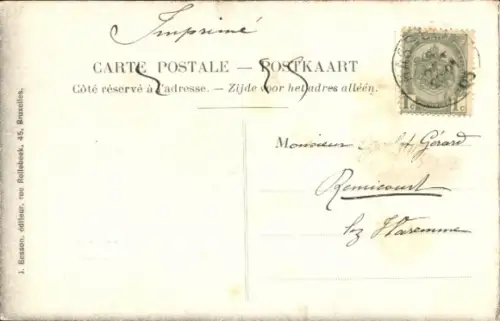 Imprimé
CARTE POSTALE — POSTKAART
Côté réservé à l'adresse. — Zijde voor het adres alléén.
1c 1c
Monsieur Gérard
Remicourt
lez Waremme
J. Besson, éditeur, rue Rollebeek, 45, Bruxelles.